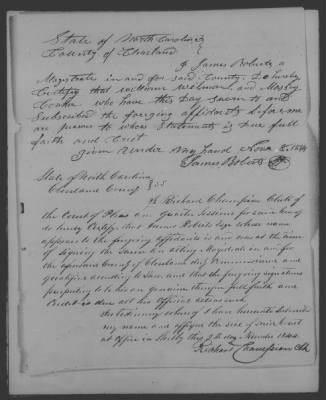 State of North Carolina
County of Cleaveland
I James Roberts a
Magistrate in and for said County, Do hereby
Certify that William Wellmon, and Mosley
who have this Day sworn to and
Subscribed the forging affidavits before me
are persons to whose Statements is Due full
faith and Credit
given under my hand Nov 8, 1844
James Roberts
State of North Carolina
Cleaveland County SS
I Richard Champion Clerk of
the Court of Pleas and Quarter Sessions for said County
do hereby Certify, that James Roberts Esqr whose name
appears to the forgoing affidavits is and was at the time
of signing the same an acting Magistrate in and for
the aforesaid County of Cleaveland duly Commissioned and
qualified according to Law, and that the forgoing signatures
purporting to be his are genuine therefore full faith and
Credit is due all his official acts as such
In testimony whereof I have hereunto subscribed
my name and affixed the seal of said Court
at office in Shelby this day November 1844
Richard Champion Clk